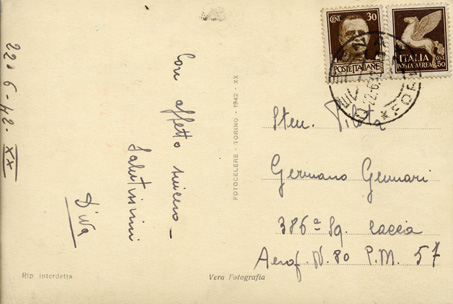 22-6-42-XX
Con affetto sincero -
Salutissimi
Diva
Rip interdetta
Vera Fotografia
FOTOCELERE - TORINO - 1942 - XX
CENT 30
POSTE ITALIANE
ITALIA
POSTA AEREA
CENT 50
Sten. Pilota
Germano Gennari
386ª Sq. Caccia
Aerof. N. 80 P.M. 57